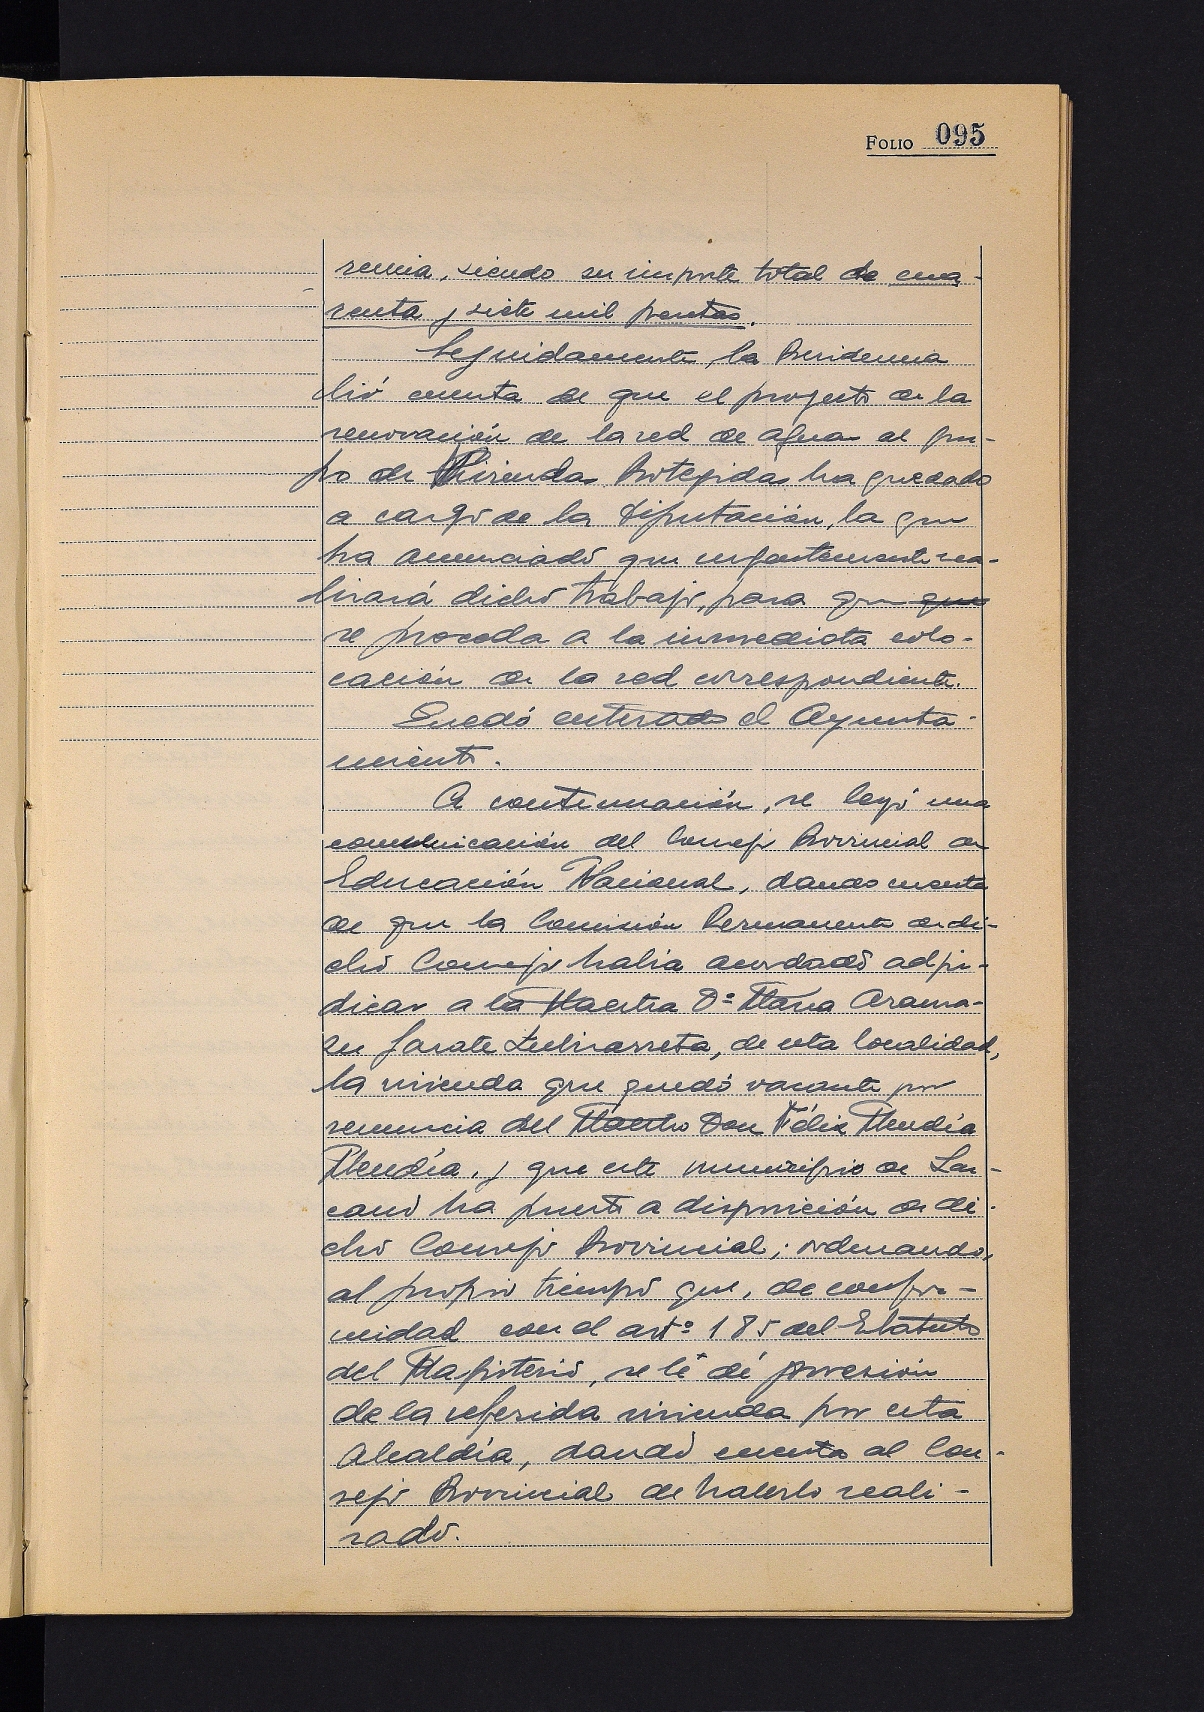 FOLIO 095
rencia, siendo su importe total de cua-
renta y siete mil pesetas.
Seguidamente, la Presidencia
dió cuenta de que el proyecto de la
renovación de la red de aguas al gru-
po de Viviendas Protegidas ha quedado
a cargo de la Diputación, la que
ha anunciado que urgentemente rea-
lizará dicho trabajo, para que que
se proceda a la inmediata colo-
cación de la red correspondiente.
Quedó enterado el Ayunta-
miento.
A continuación, se leyó una
comunicación del Consejo Provincial de
Educación Nacional, dando cuenta
de que la Comisión Permanente de di-
cho Consejo había acordado adju-
dicar a la Maestra Dª María Aranza-
zu Garate Lubiarreta, de esta localidad,
la vivienda que quedó vacante por
renuncia del Maestro Don Félix Mendía
Mendía, y que este municipio de Laz-
cano ha puesto a disposición de di-
cho Consejo Provincial; ordenando,
al propio tiempo que, de confor-
midad con el artº 185 del Estatuto
del Magisterio, se le dé posesión
de la referida vivienda por esta
Alcaldía, dando cuenta al Con-
sejo Provincial de haberlo reali-
zado.